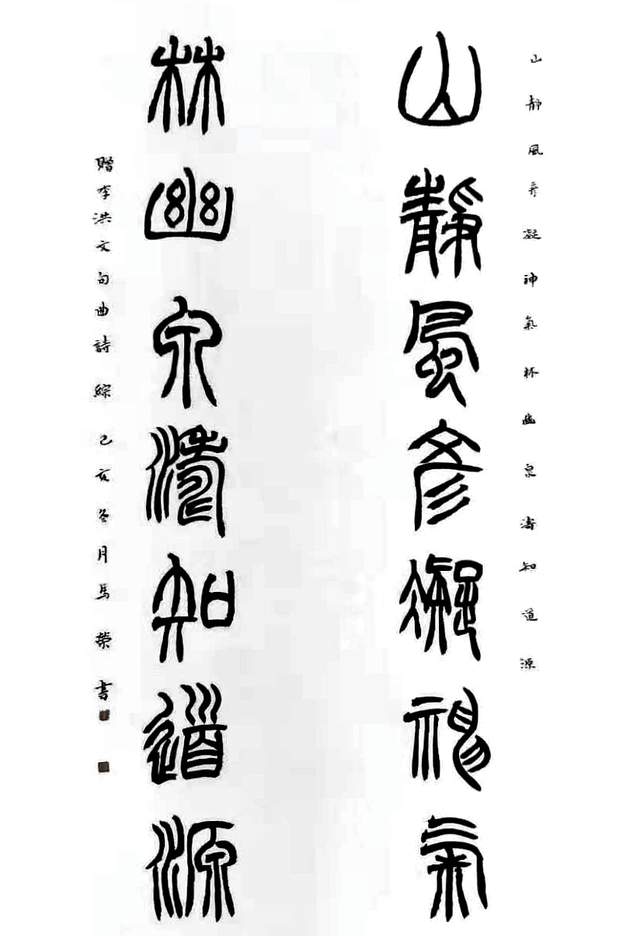 山靜風凝神氣林幽泉濤知道源
山靜風彥凝神氣
林幽泉濤知道源
贈李洪文句曲詩綜己亥冬月馬榮書